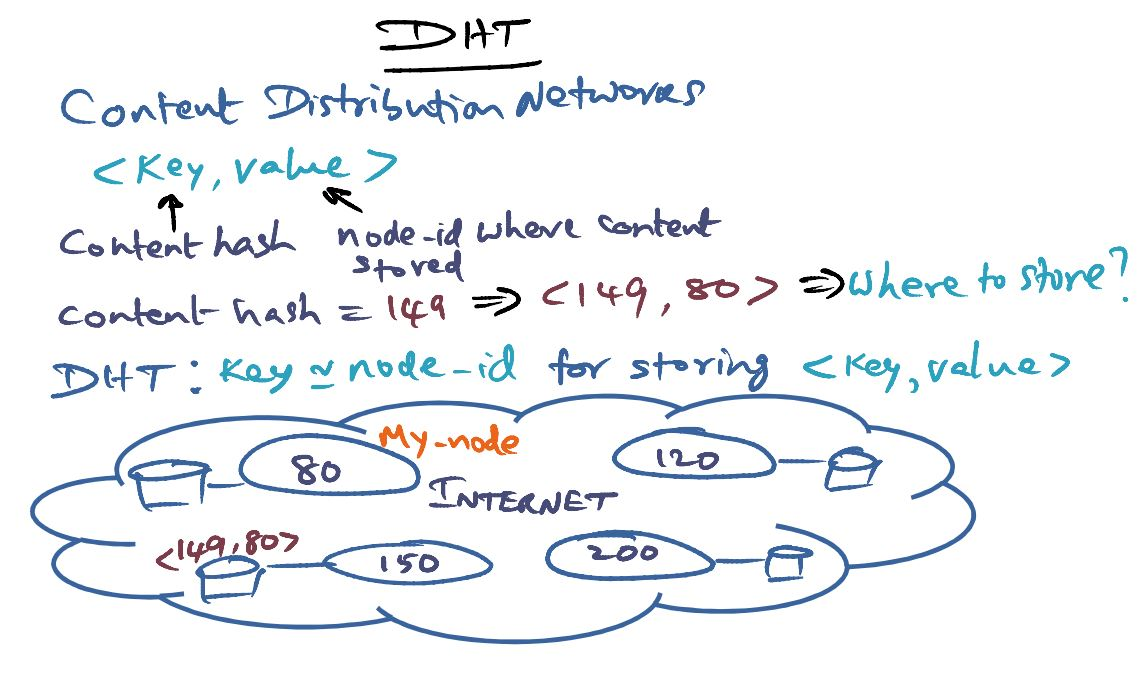 DHT
Content Distribution Networks
<Key, value>
Content hash node-id where content
stored
content-hash = 149 ⇒ <149, 80> ⇒ where to store?
DHT: Key ≃ node-id for storing <Key, value>
My-node
80
120
INTERNET
<149, 80>
150
200